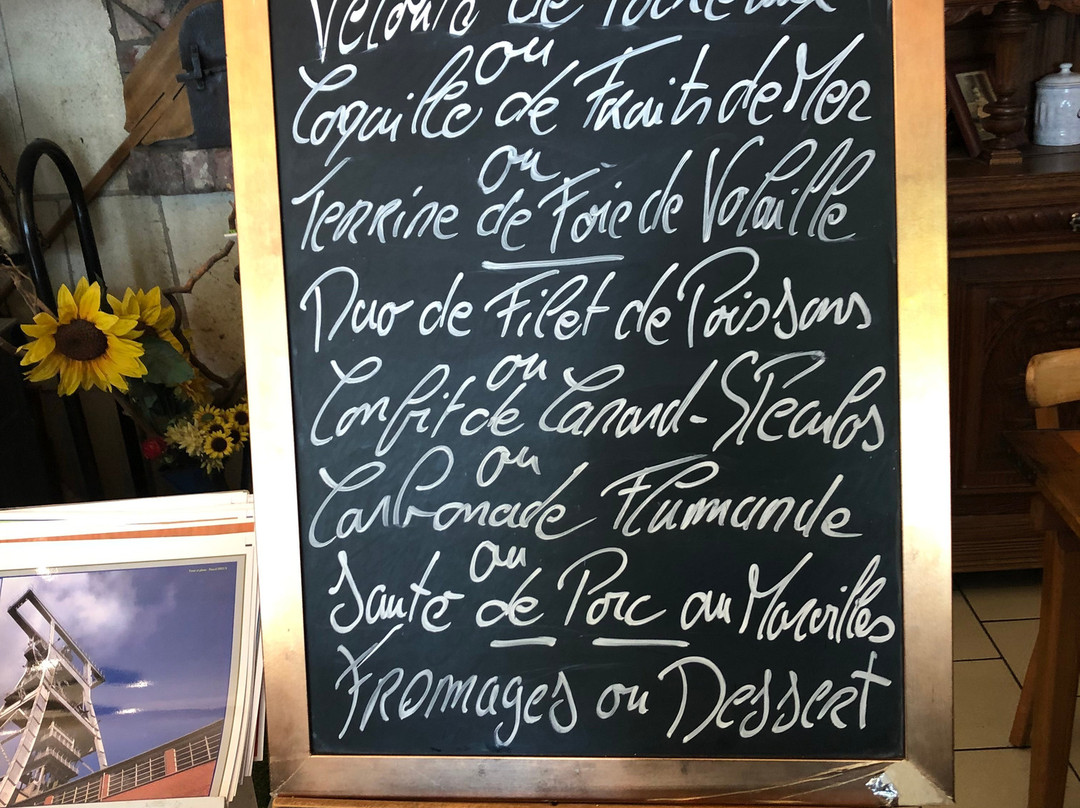 Velouté de Poireaux
ou
Coquille de Fruits de Mer
ou
Terrine de Foie de Volaille
Duo de Filet de Poissons
ou
Confit de Canard-Spéculos
ou
Carbonade Flamande
ou
Sauté de Porc au Maroilles
Fromages ou Dessert